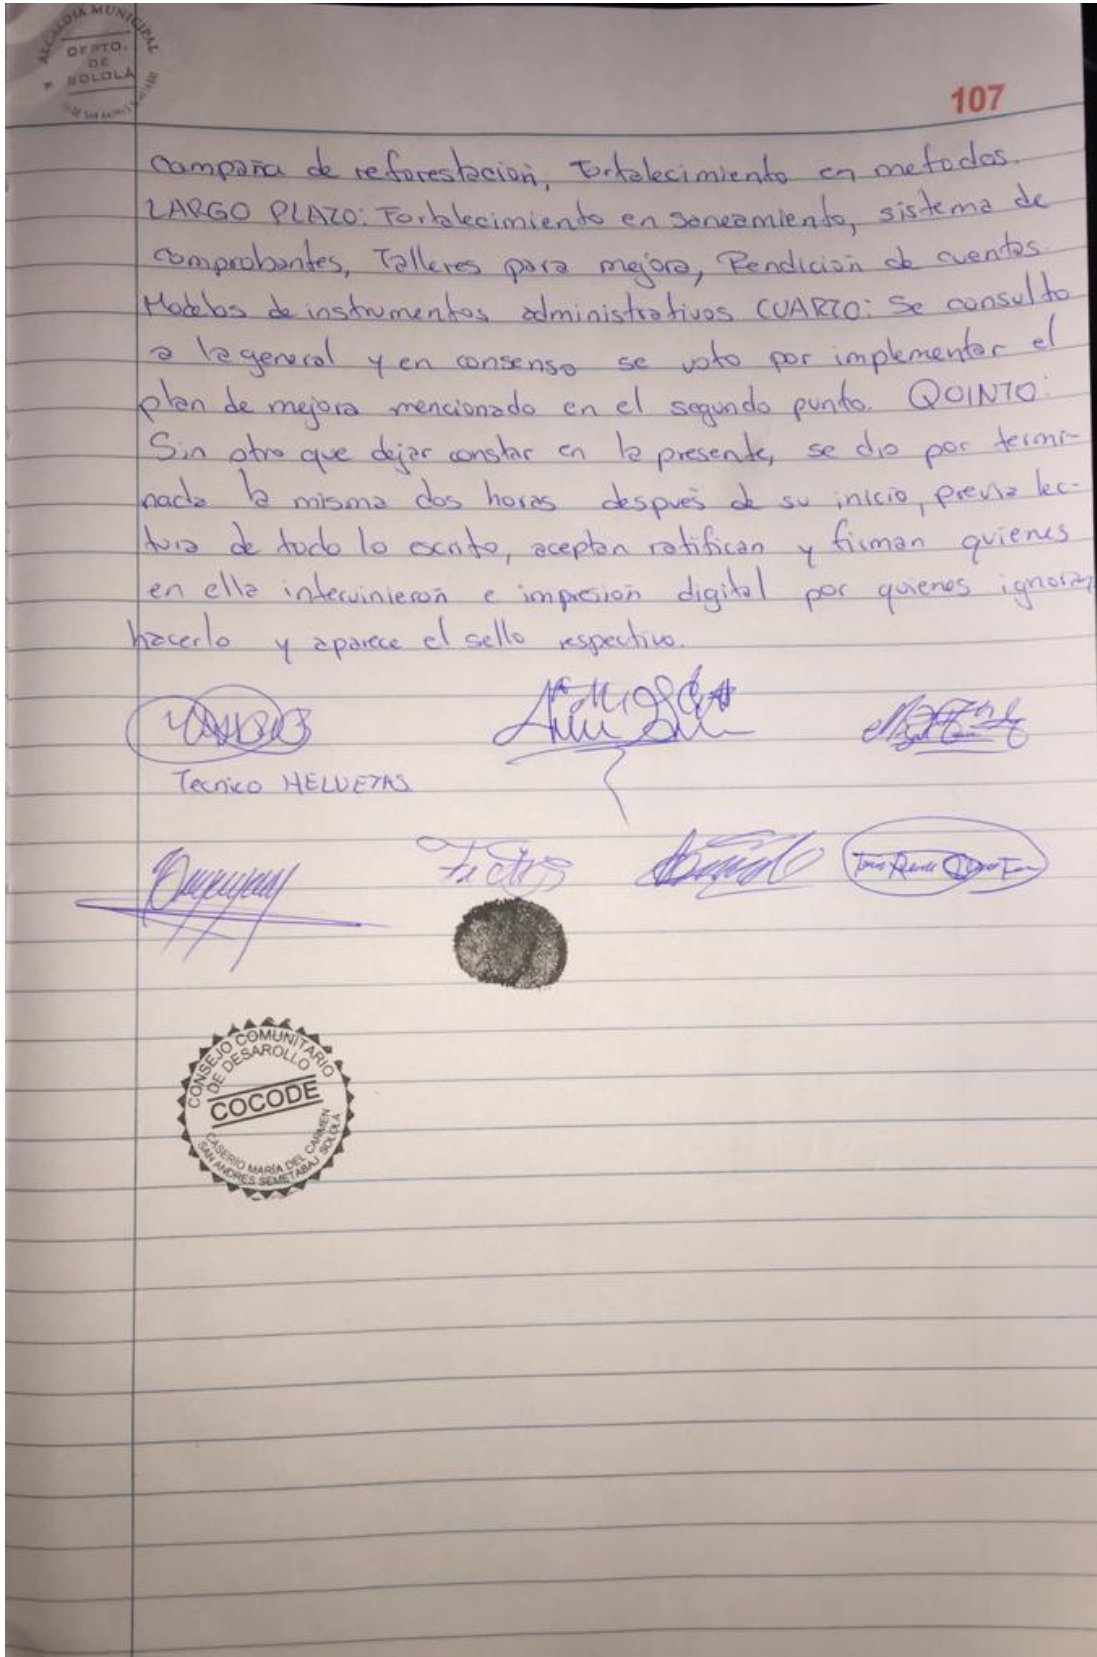 ALCALDIA MUNICIPAL
DEPTO.
DE
SOLOLÁ
107
campaña de reforestación, Fortalecimiento en metodos.
LARGO PLAZO: Fortalecimiento en saneamiento, sistema de
comprobantes, Talleres para mejora, Rendición de cuentas
Modelos de instrumentos administrativos CUARTO: Se consulto
a la general y en consenso se voto por implementar el
plan de mejora mencionado en el segundo punto. QUINTO:
Sin otro que dejar constar en la presente, se dio por termi-
nada la misma dos horas después de su inicio, previa lec-
tura de todo lo escrito, aceptan ratifican y firman quienes
en ella intervinierón e impresión digital por quienes ignoran
hacerlo y aparece el sello respectivo.
Tecnico HELVETAS
CONSEJO COMUNITARIO
DE DESAROLLO
COCODE
CASERIO MARÍA DEL CARMEN
SAN ANDRES SEMETABAJ SOLOLÁ